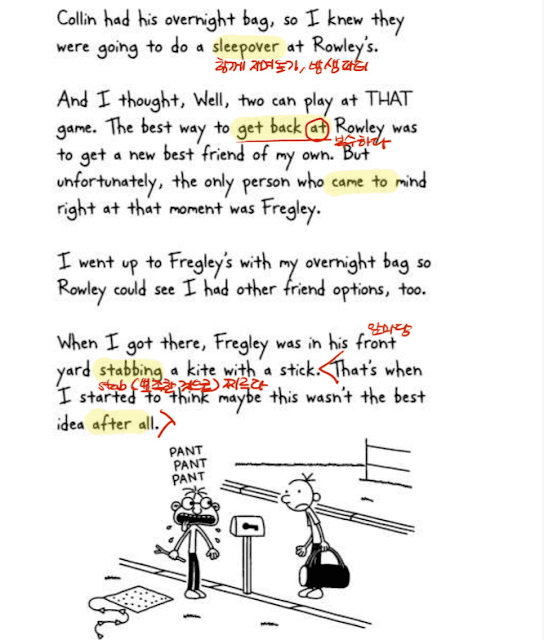 Collin had his overnight bag, so I knew they
were going to do a sleepover at Rowley's.
함께 자며놀기, 밤샘파티
And I thought, Well, two can play at THAT
game. The best way to get back at Rowley was
복수하다
to get a new best friend of my own. But
unfortunately, the only person who came to mind
right at that moment was Fregley.
I went up to Fregley's with my overnight bag so
Rowley could see I had other friend options, too.
앞마당
When I got there, Fregley was in his front
yard stabbing a kite with a stick. That's when
stab (뾰족한 것으로) 찌르다
I started to think maybe this wasn't the best
idea after all.
PANT
PANT
PANT